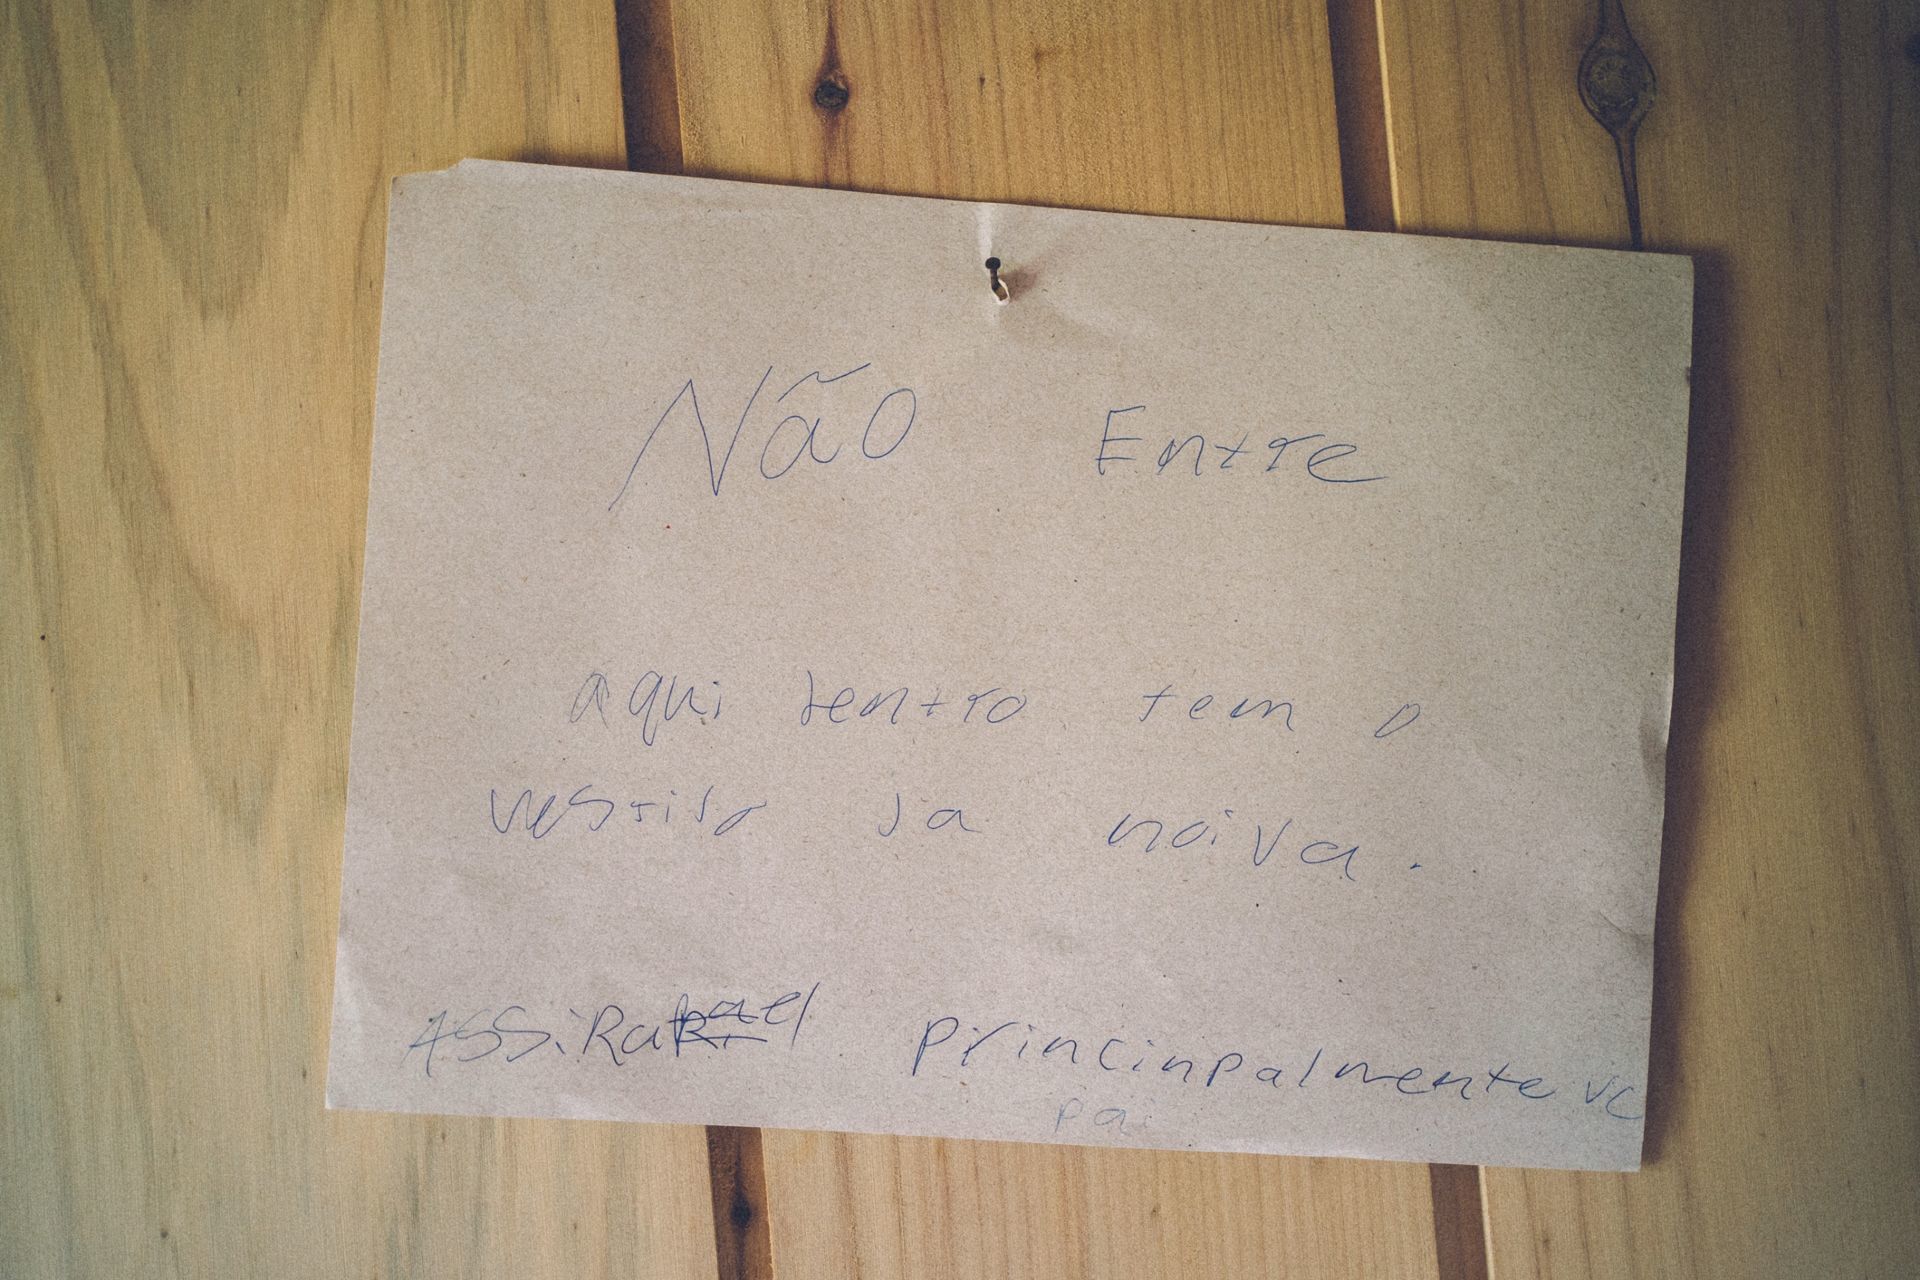 Não Entre
aqui dentro tem o
vestido da noiva.
ASSiRafael princinpalmente vc
pai